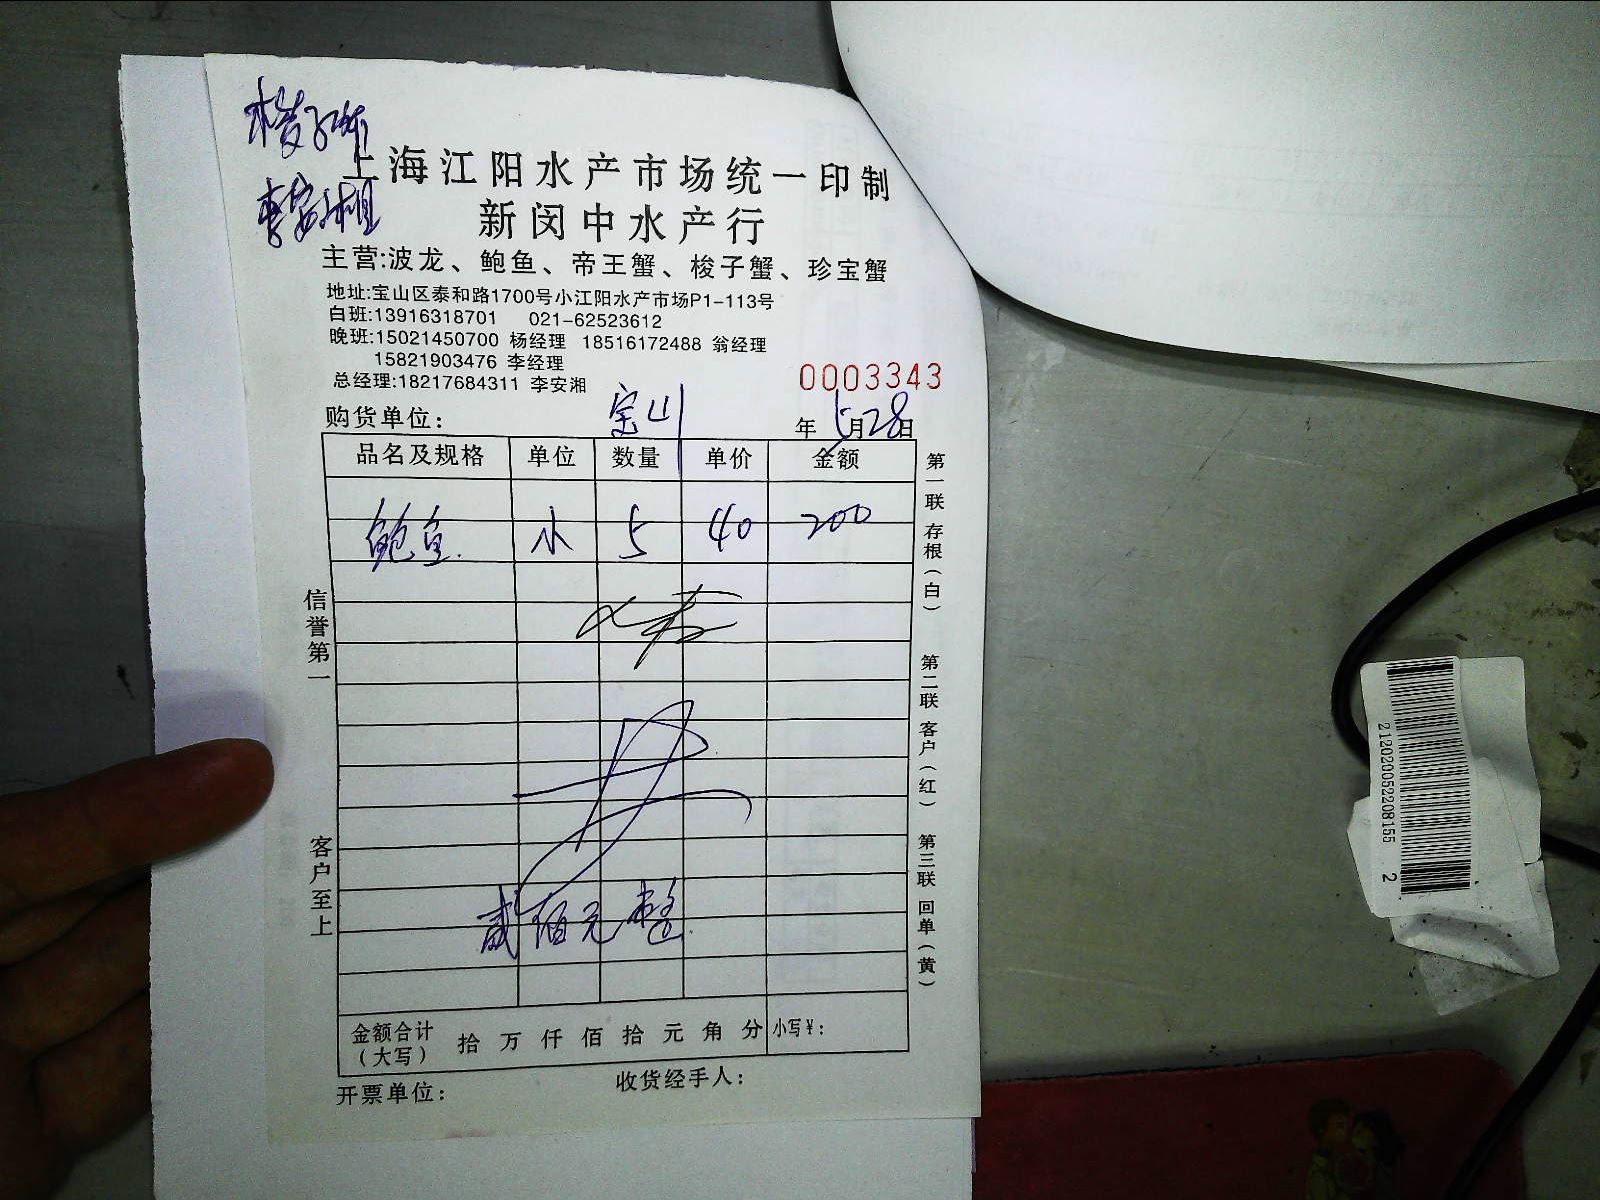 李安湘
上海江阳水产市场统一印制
新闵中水产行
主营:波龙、鲍鱼、帝王蟹、梭子蟹、珍宝蟹
地址:宝山区泰和路1700号小江阳水产市场P1-113号
白班:13916318701 021-62523612
晚班:15021450700 杨经理 18516172488 翁经理
15821903476 李经理
总经理:18217684311 李安湘
0003343
购货单位: 宝山 年 5月28日
品名及规格 单位 数量 单价 金额
鲍鱼 小 5 40 200
贰佰元整
金额合计(大写) 拾 万 仟 佰 拾 元 角 分 小写¥:
开票单位: 收货经手人:
信誉第一
客户至上
第一联 存根(白)
第二联 客户(红)
第三联 回单(黄)
2120200522208155 2